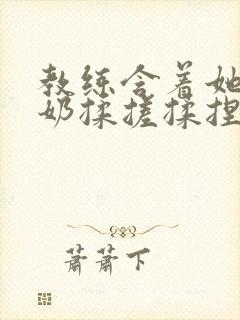 教练含着她
奶揉搓揉捏
萧萧下